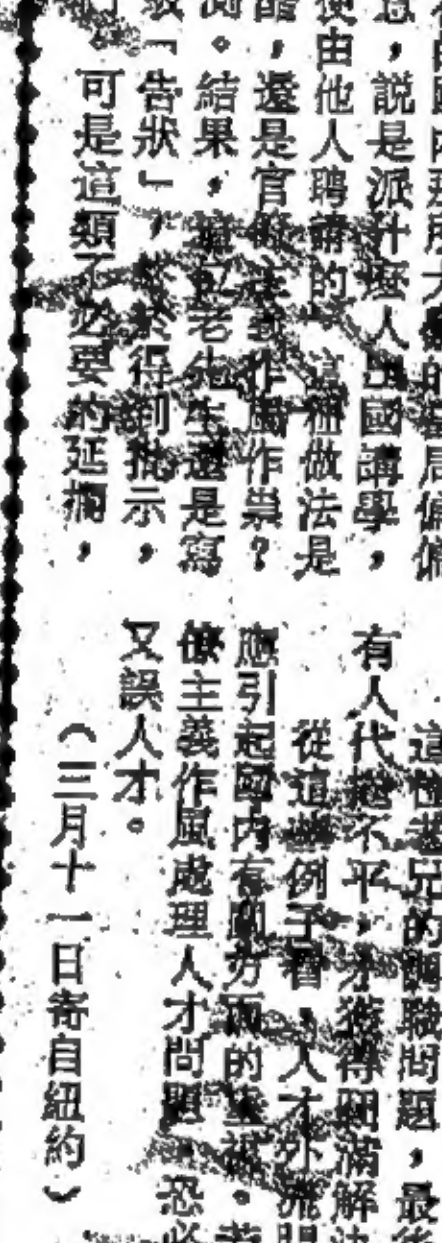 意，説是派什麼人出國講學，
使由他人聘請的，這種做法是
，還是官僚主義作風作祟？
測。結果，這位老先生還是寫
「告狀」，終於得到批示，
。可是這類不必要的延擱，
這位老兄的調職問題，最後
有人代抱不平，才獲得圓滿解決
從這些例子看，人才外流問
應引起國內有關方面的重視。若
僚主義作風處理人才問題，恐必
又誤人才。
（三月十一日寄自紐約）